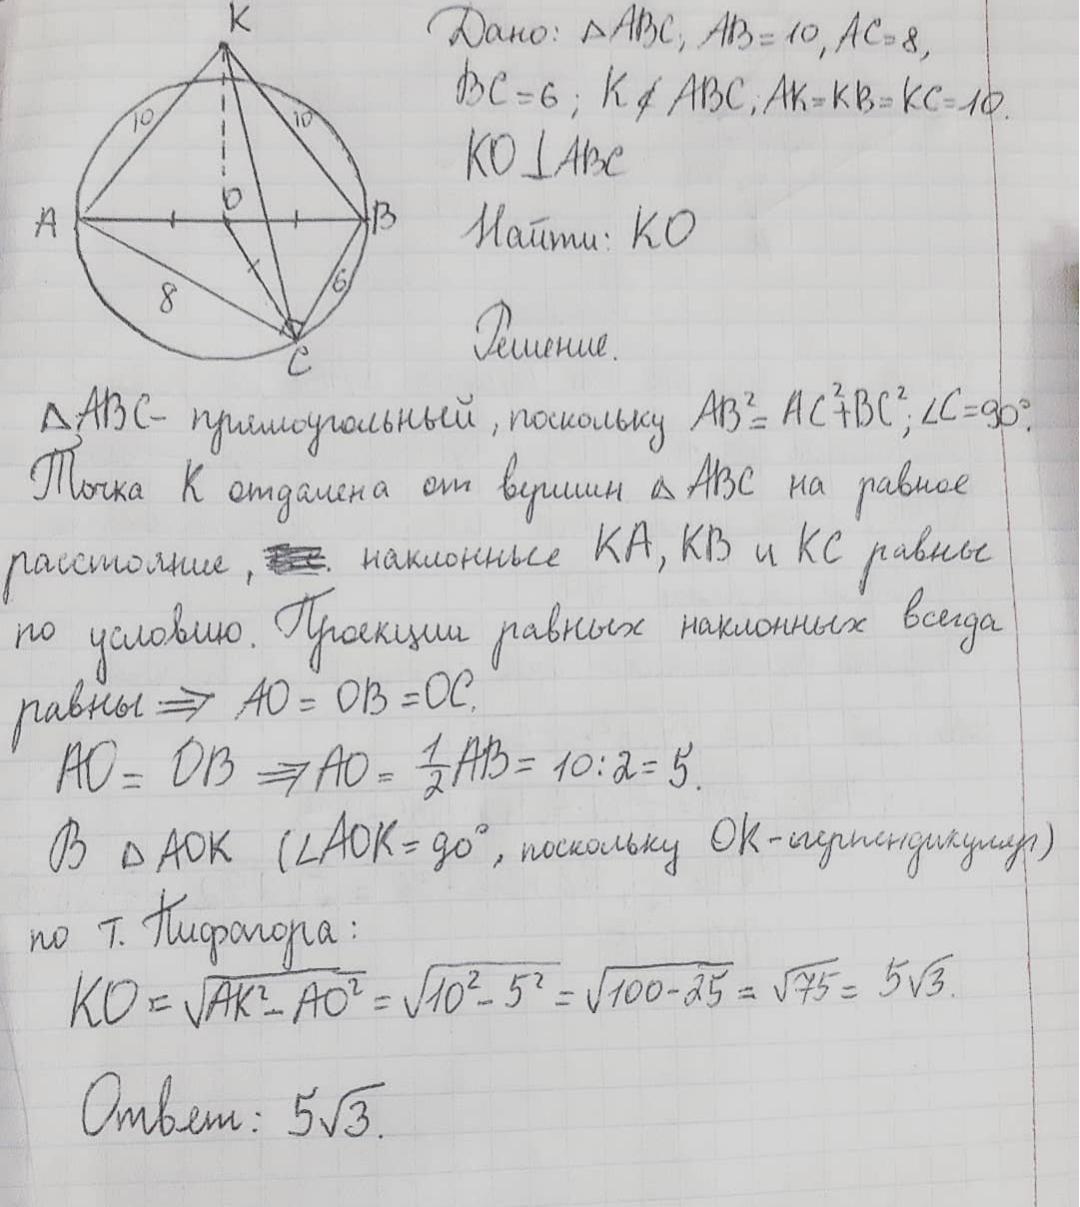 K
Дано: △ABC, AB = 10, AC = 8,
BC = 6; K ∉ ABC, AK = KB = KC = 10.
10 10
KO ⊥ ABC
A O B
Найти: KO
8 6
C
Решение.
△ABC - прямоугольный, поскольку AB² = AC² + BC²; ∠C = 90°.
Точка K отдалена от вершин △ABC на равное
расстояние, наклонные KA, KB и KC равны
по условию. Проекции равных наклонных всегда
равны ⇒ AO = OB = OC.
AO = OB ⇒ AO = 1/2 AB = 10 : 2 = 5.
В △AOK (∠AOK = 90°, поскольку OK - перпендикуляр)
по т. Пифагора:
KO = √AK² - AO² = √10² - 5² = √100 - 25 = √75 = 5√3.
Ответ: 5√3.